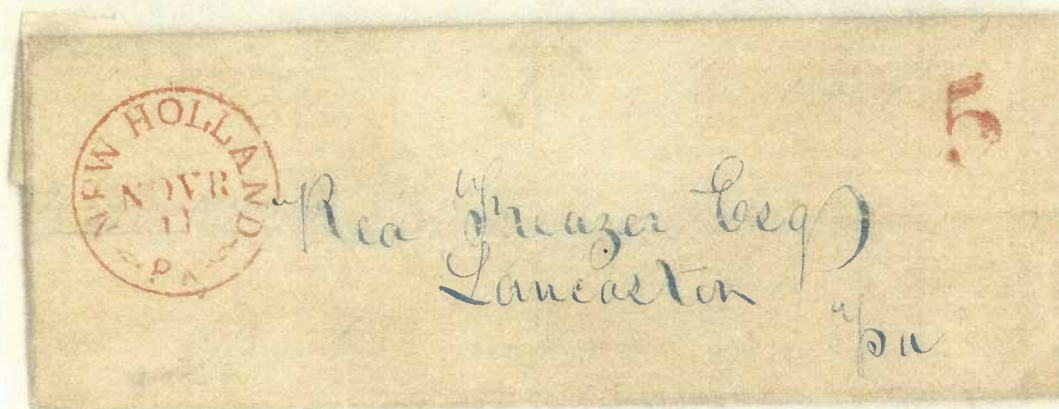 NEW HOLLAND
Pa.
NOVR
11
5
Rea Freazer Esq
Lancaster
Pa